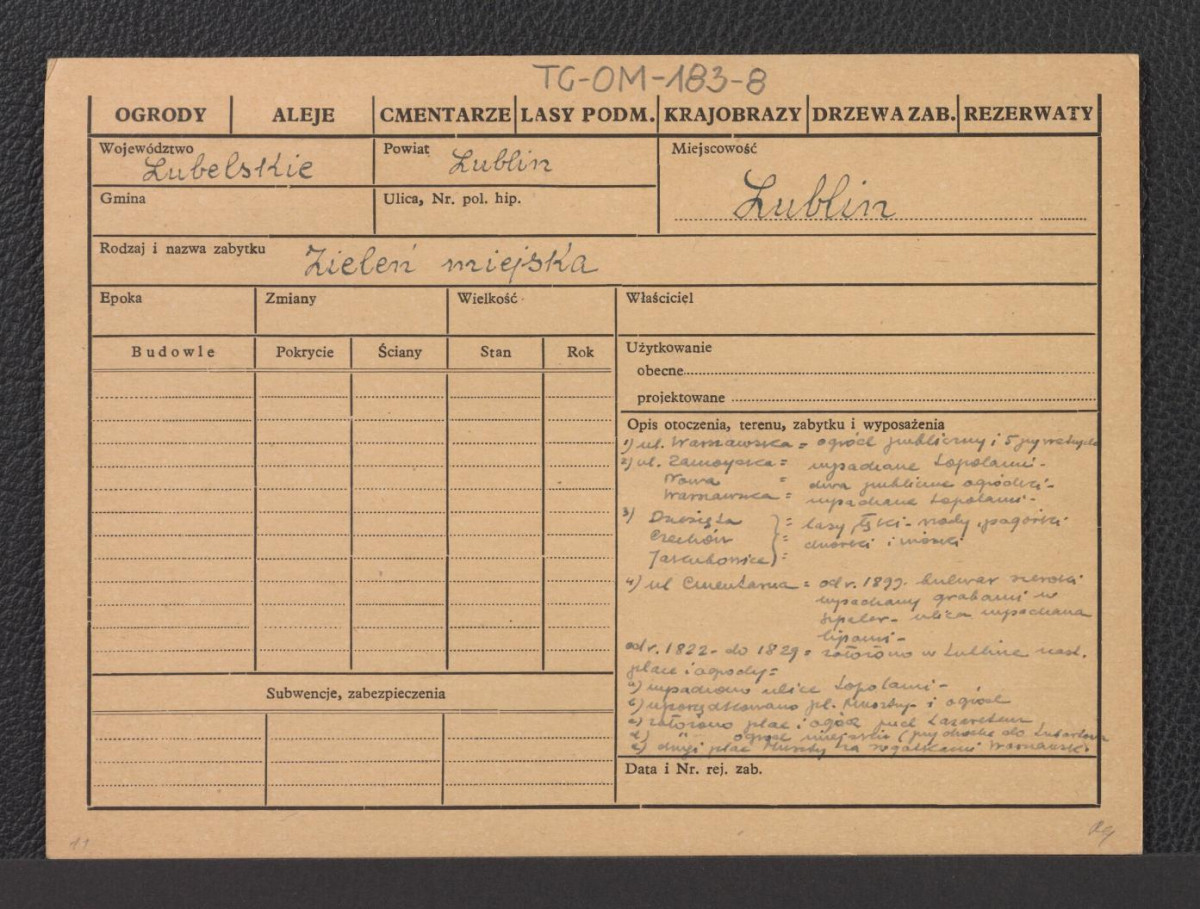 TG-OM-183-8
OGRODY ALEJE CMENTARZE LASY PODM. KRAJOBRAZY DRZEWA ZAB. REZERWATY
Województwo Lubelskie
Powiat Lublin
Miejscowość
Lublin
Gmina
Ulica, Nr. pol. hip.
Rodzaj i nazwa zabytku Zieleń miejska
Epoka Zmiany Wielkość
Właściciel
Budowle Pokrycie Ściany Stan Rok
Użytkowanie
obecne
projektowane
Opis otoczenia, terenu, zabytku i wyposażenia
1) ul. Warszawska = ogród publiczny i 5 prywatnych
2) ul. Zamoyska = wysadzane topolami-
Nowa = dwa publiczne ogródki-
Warszawska = wysadzane topolami-
3) Dziesiąta = lasy, łąki- wody, pagórki
Czechów = dworki i wioski
Jakubowice =
4) ul Cmentarna = od r. 1899. bulwar szeroki
wysadzany grabami w
szpaler- ulica wysadzana
lipami-
od r. 1822- do 1829 = założono w Lublinie nast.
place i ogrody=
a) wysadzono ulice topolami-
b) uporządkowano pl. Musztry- i ogród
c) założono plac i ogód pod Lazaretem
d) " " ogród miejski (przy drodze do Lubartowa
e) drugi plac Musztry za rogatkami Warszawsk.
Subwencje, zabezpieczenia
Data i Nr. rej. zab.
11